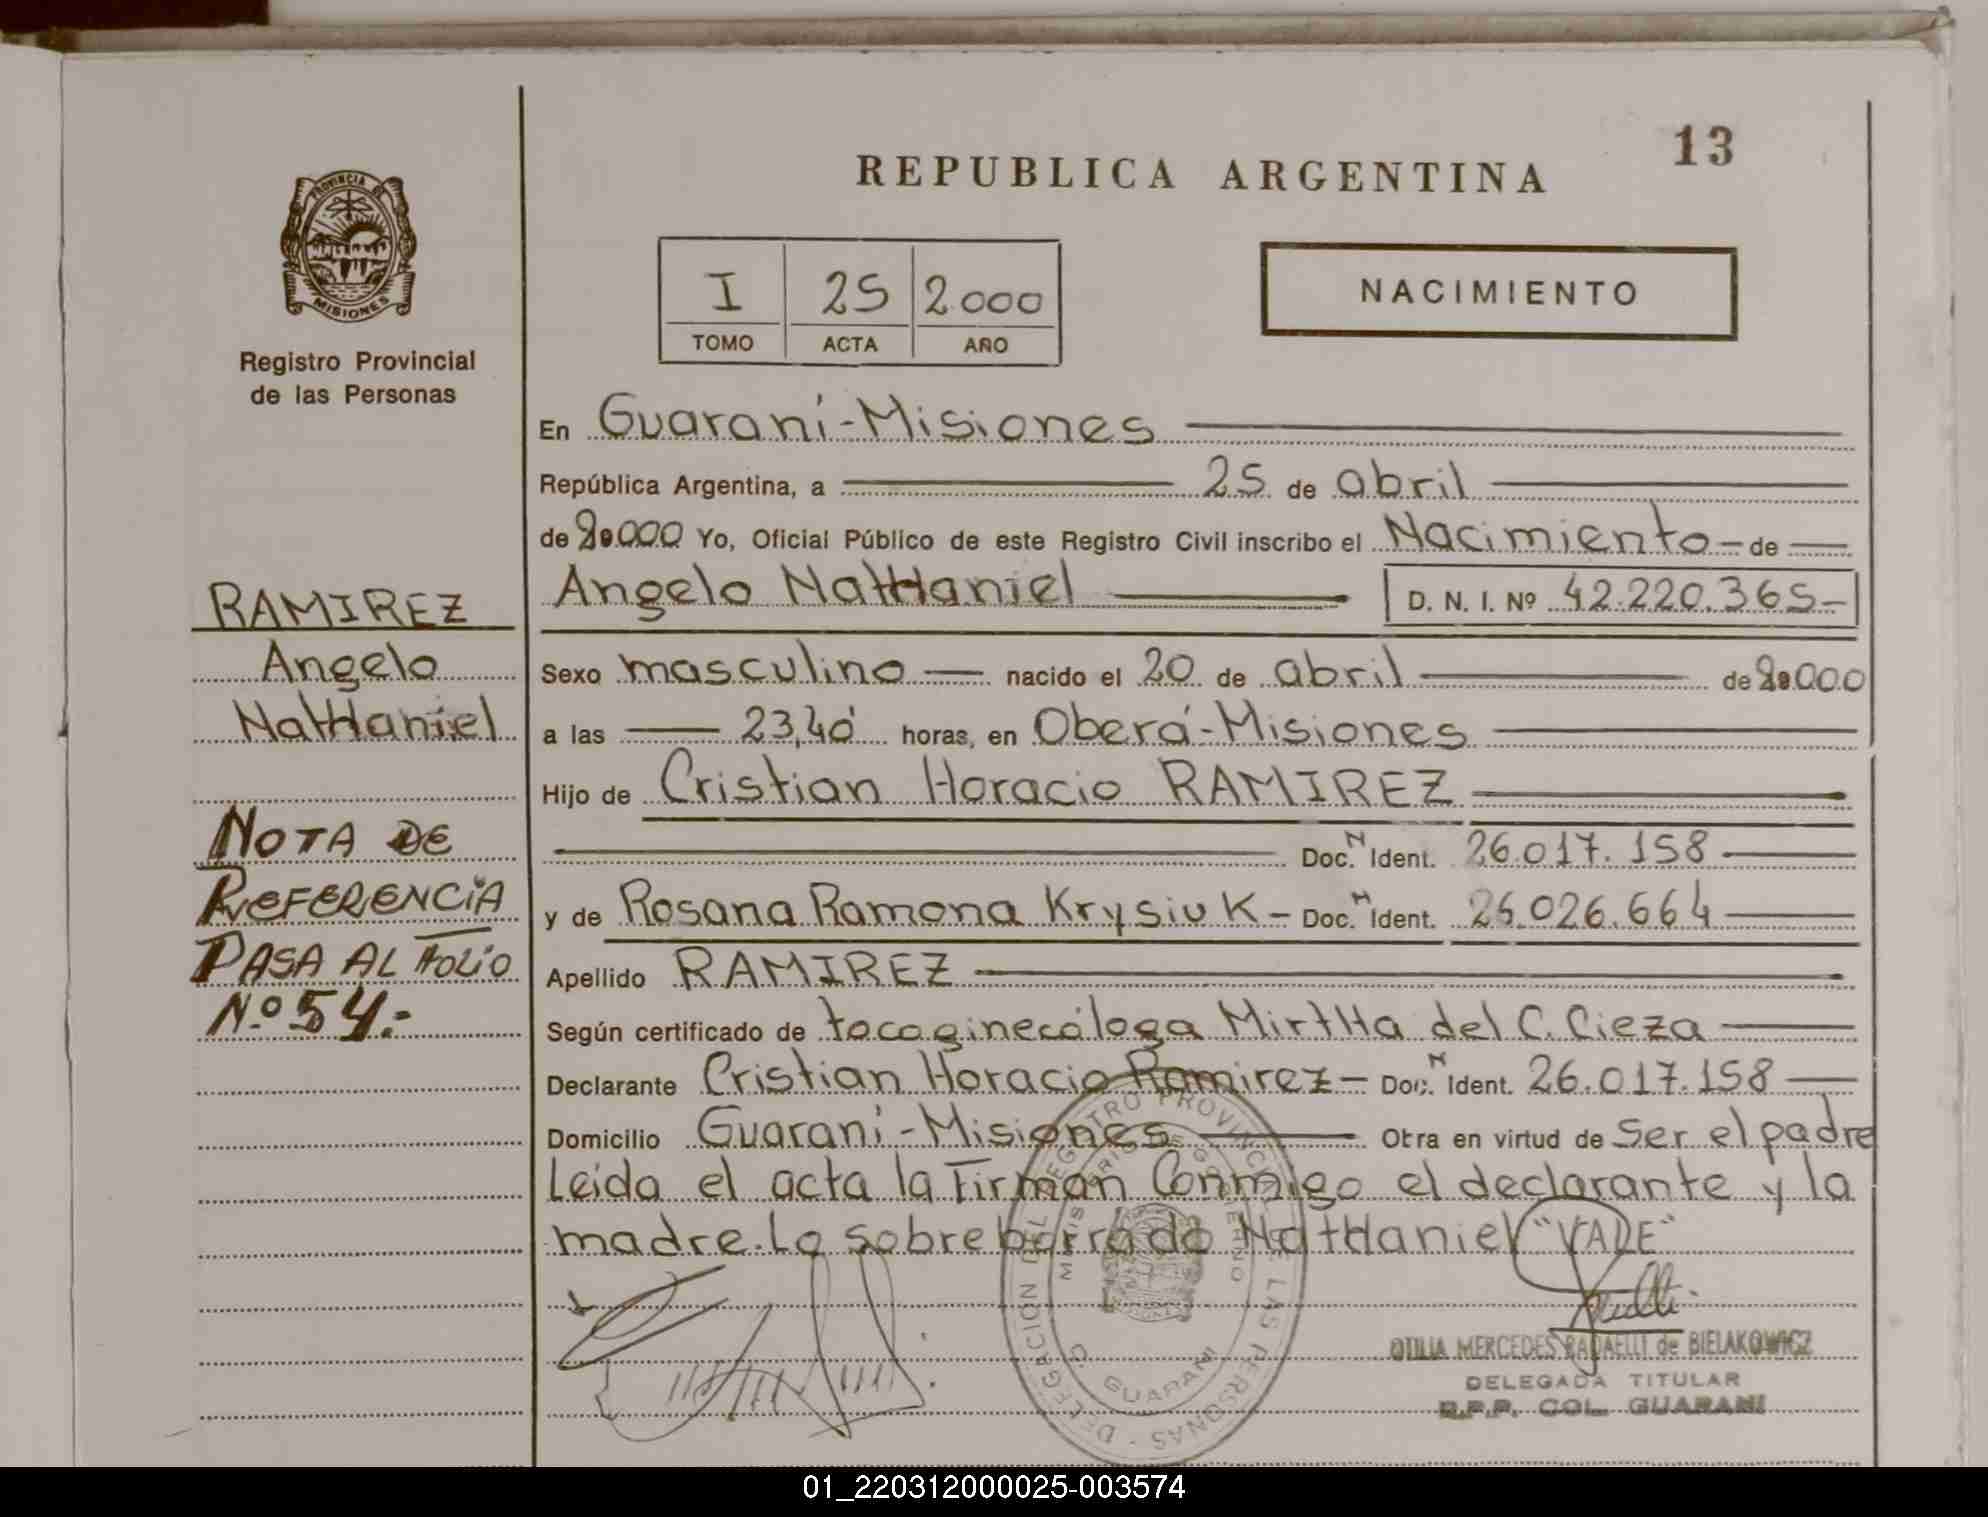 13
REPUBLICA ARGENTINA
PROVINCIA DE
MISIONES
Registro Provincial
de las Personas
I 25 2.000
TOMO ACTA AÑO
NACIMIENTO
En Guaraní-Misiones
República Argentina, a 25 de abril
de 2.000 Yo, Oficial Público de este Registro Civil inscribo el Nacimiento de
Angelo NatHaniel D. N. I. Nº 42.220.365-
RAMIREZ
Angelo
NatHaniel
Sexo masculino nacido el 20 de abril de 2.000
a las 23,40 horas, en Oberá-Misiones
Hijo de Cristian Horacio RAMIREZ
Doc. N Ident. 26.017.158
y de Rosana Ramona Krysiuk - Doc. N Ident. 26.026.664
Apellido RAMIREZ
Según certificado de tocoginecóloga MirtHa del C. Cieza
Declarante Cristian Horacio Ramirez - Doc. N Ident. 26.017.158
Domicilio Guaraní-Misiones Obra en virtud de Ser el padre
Leída el acta la Firman Conmigo el declarante y la
madre. Lo sobreborrado NatHaniel "VALE"
NOTA DE
REFERENCIA
PASA AL FOLIO
N.º 54.-
DELEGACION DEL REGISTRO PROVINCIAL DE LAS PERSONAS
MINISTERIO DE GOBIERNO
GUARANI
OTILIA MERCEDES RADAELLI de BIELAKOWICZ
DELEGADA TITULAR
R.P.P. COL. GUARANI
01_220312000025-003574